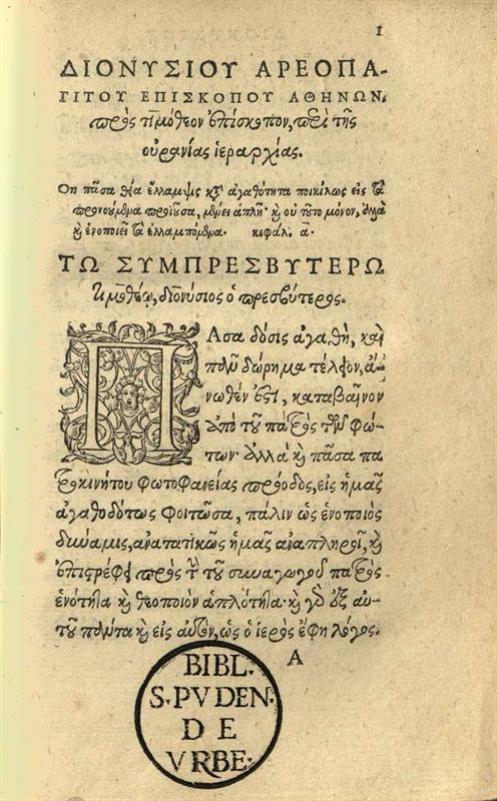 1
ΔΙΟΝΥΣΙΟΥ ΑΡΕΟΠΑ-
ΓΙΤΟΥ ΕΠΙΣΚΟΠΟΥ ΑΘΗΝΩΝ,
πρὸς τιμόθεον ἐπίσκοπον, περὶ τῆς
οὐρανίας ἱεραρχίας.
Οτι πᾶσα θεία ἔλλαμψις κατ' ἀγαθότητα ποικίλως εἰς τὰ
προνοούμενα προϊοῦσα, μένει ἁπλῆ· καὶ οὐ τοῦτο μόνον, ἀλλὰ
καὶ ἑνοποιεῖ τὰ ἐλλαμπόμενα. κεφάλ. α.
ΤΩ ΣΥΜΠΡΕΣΒΥΤΕΡΩ
τιμοθέῳ, διονύσιος ὁ πρεσβύτερος.
ΠΑσα δόσις ἀγαθὴ, καὶ
πᾶν δώρημα τέλειον, ἄ-
νωθέν ἐστι, καταβαῖνον
ἀπὸ τοῦ πατρὸς τῶν φώ-
των· ἀλλὰ καὶ πᾶσα πα
τροκινήτου φωτοφανείας πρόοδος, εἰς ἡμᾶς
ἀγαθοδότως φοιτῶσα, πάλιν ὡς ἑνοποιὸς
δύναμις, ἀνατατικῶς ἡμᾶς ἀναπληροῖ, καὶ
ἐπιστρέφει πρὸς τὴν τοῦ συναγωγοῦ πατρὸς
ἑνότητα καὶ θεοποιὸν ἁπλότητα· καὶ γὰρ ἐξ αὐ-
τοῦ πάντα καὶ εἰς αὐτὸν, ὡς ὁ ἱερὸς ἔφη λόγος.
A
BIBL.
S·PVDEN·
DE
VRBE·